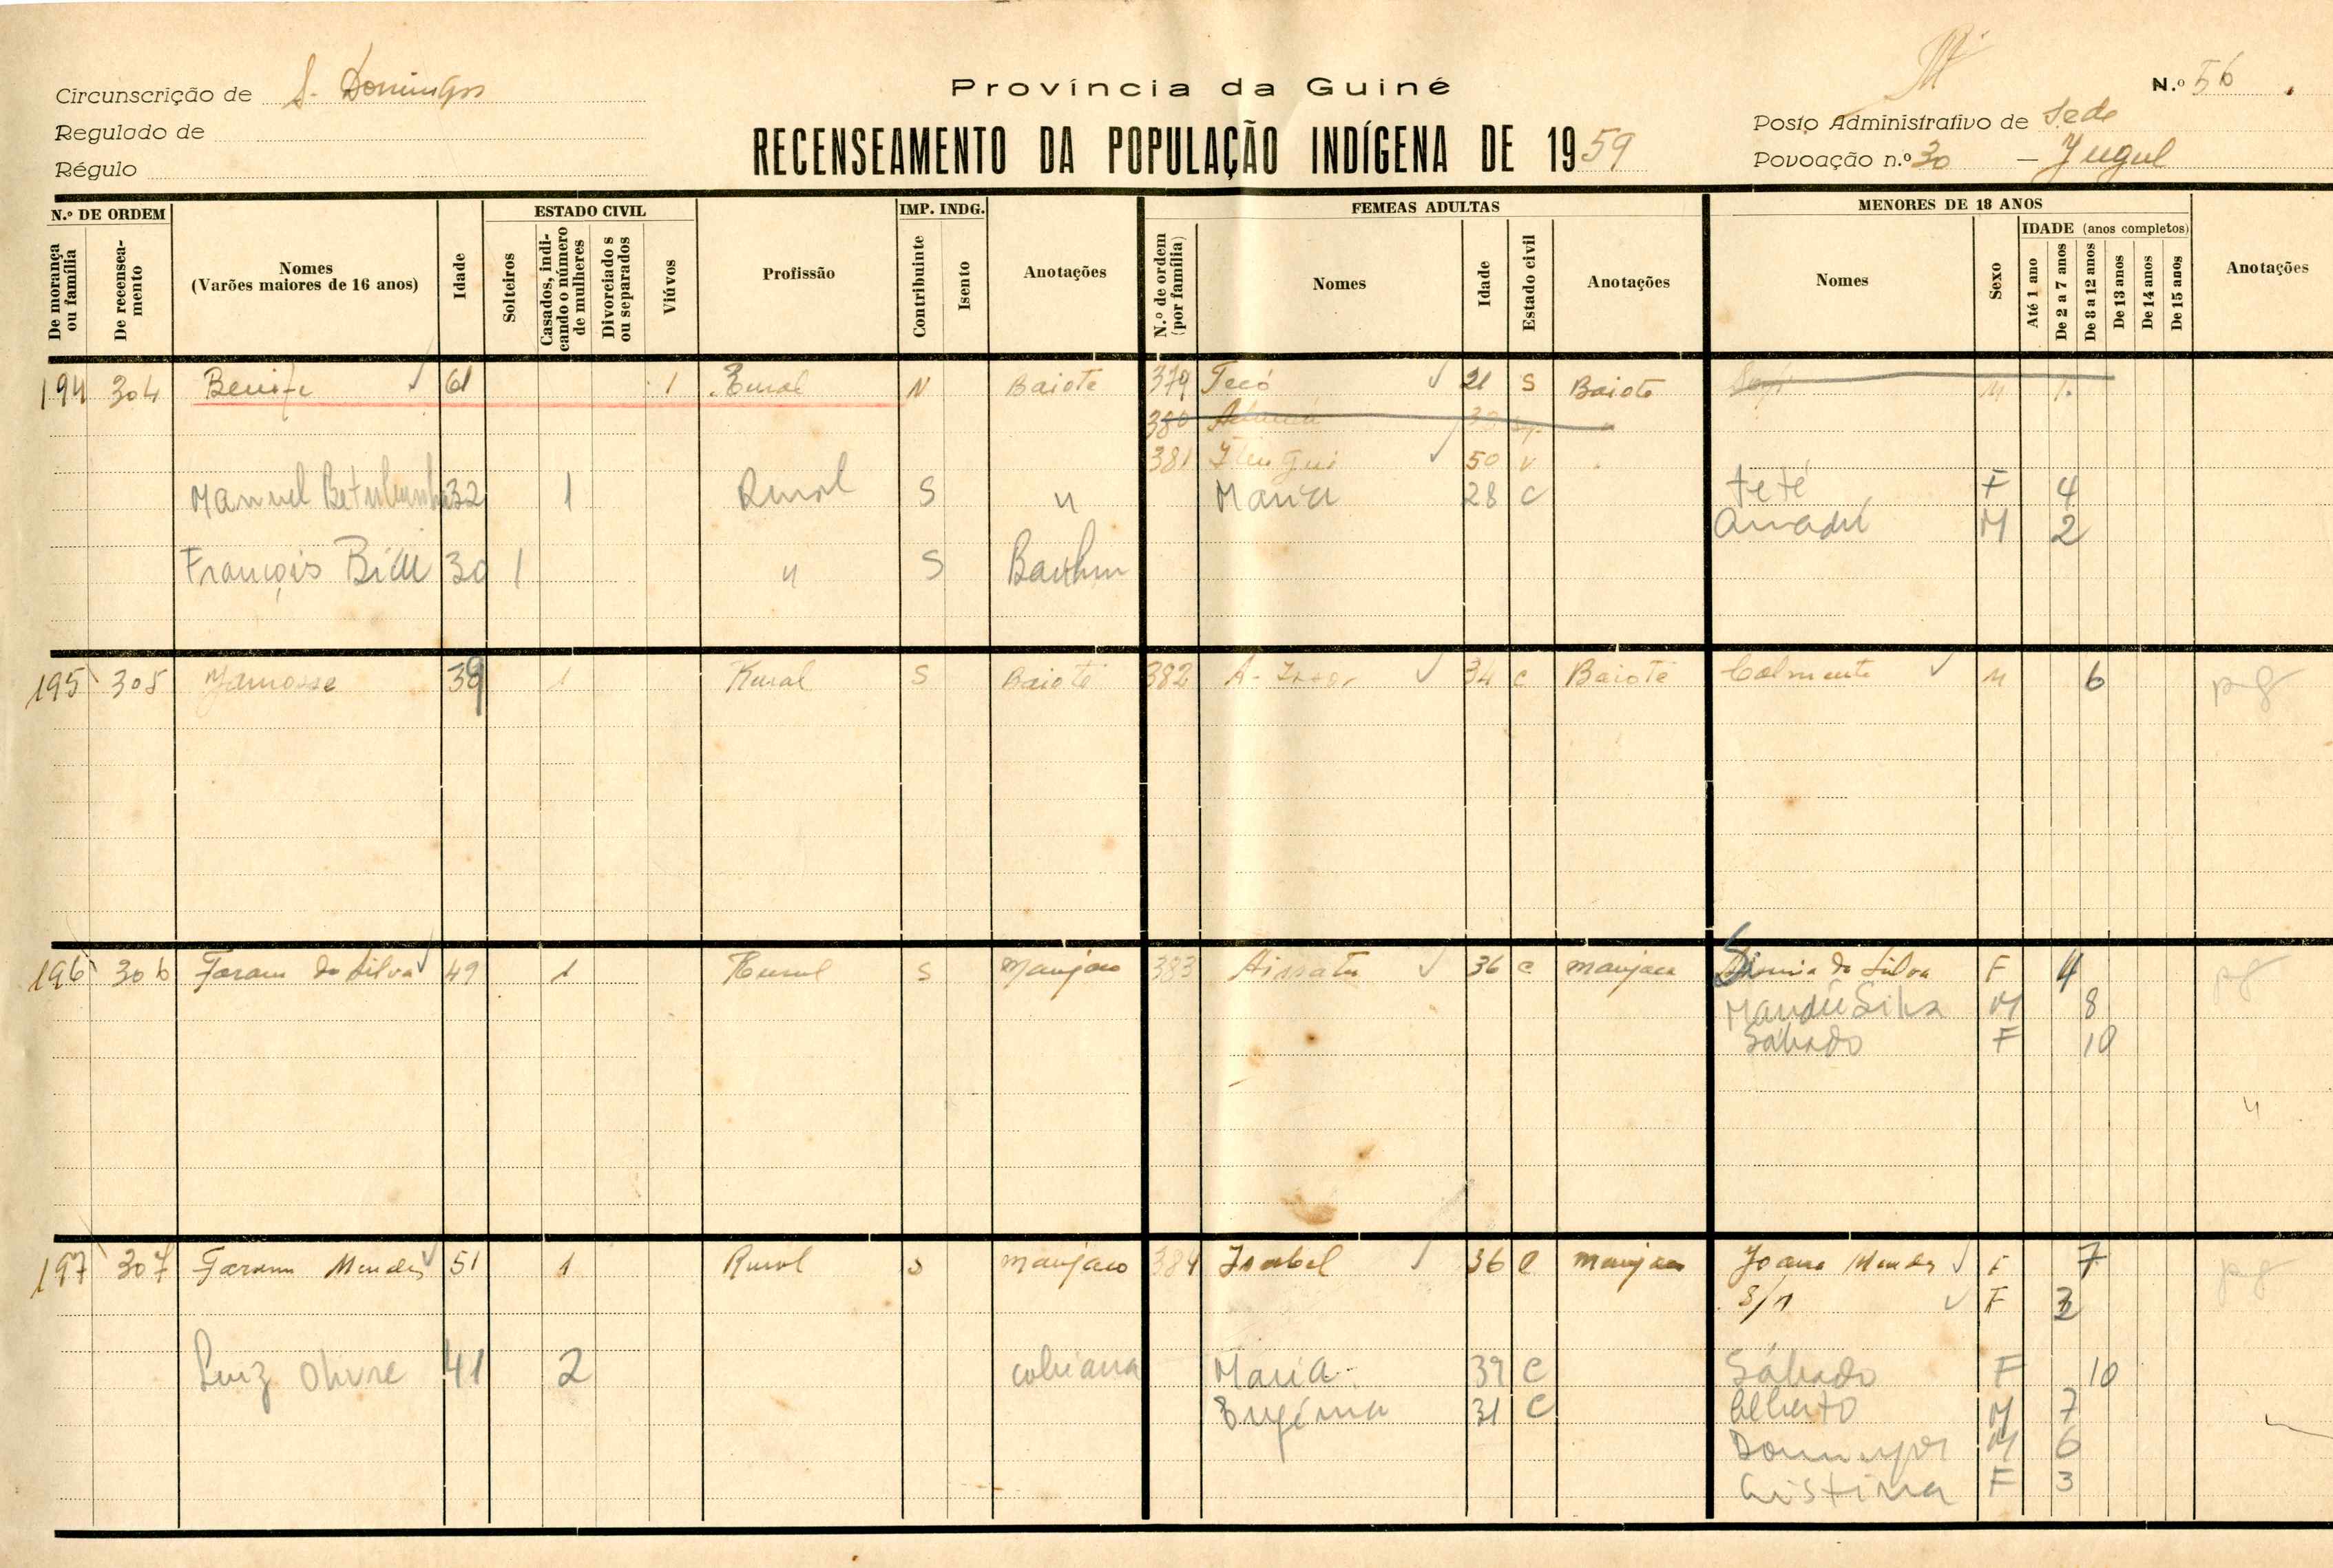 Província da Guiné
N.º 56
Circunscrição de S. Domingos
Regulado de
Régulo
RECENSEAMENTO DA POPULAÇÃO INDÍGENA DE 1959
Posto Administrativo de Sede
Povoação n.º 30 — Jugul
N.º DE ORDEM
De morança ou família
De recenseamento
Nomes
(Varões maiores de 16 anos)
Idade
ESTADO CIVIL
Solteiros
Casados, indicando o número de mulheres
Divorciado s ou separados
Viúvos
Profissão
IMP. INDG.
Contribuinte
Isento
Anotações
FEMEAS ADULTAS
N.º de ordem (por família)
Nomes
Idade
Estado civil
Anotações
MENORES DE 18 ANOS
Nomes
Sexo
IDADE (anos completos)
Até 1 ano
De 2 a 7 anos
De 8 a 12 anos
De 13 anos
De 14 anos
De 15 anos
Anotações
194 304 61 1 Rural N Baiote 379 Tecó 21 S Baiote M 1
380
381 50 v
Manuel 32 1 Rural S " Maria 28 C Teté F 4
Amadú M 2
François 30 1 " S
195 305 39 1 Rural S Baiote 382 34 c Baiote M 6 pg
196 306 Faram da Silva 49 1 Rural S Manjaco 383 Aissatu 36 c manjaca da Silva F 4 pg
Silva M 8
Sábado F 10
"
197 307 Faram Mendes 51 1 Rural S manjaco 384 Isabel 36 C manjaca Joana Mendes F 7 pg
S/n F 3
Luiz 41 2 cobiana Maria 39 C Sábado F 10
Eugénia 31 C Alberto M 7
Domingos M 6
Cristina F 3